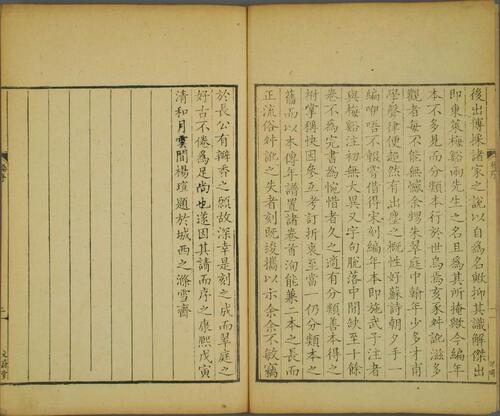 後出傳採諸家之說以自爲名歟抑其識解傑出
即東萊梅谿兩先生之名且爲其所掩歟今編年
本不多見而分類本行於世烏焉亥豕舛訛滋多
觀者每不能無憾余甥朱翠庭中翰年少多才甫
學聲律便超然有出塵之概性好蘇詩朝夕手一
編咿唔不輟嘗借得宋刻編年本即施武子注者
與梅谿注初無大異又字句脫落中間缺至十餘
卷不爲完書爲惋惜者久之適有分類善本得之
拊掌稱快因參互考訂折衷至當一仍分類本之
舊而以本傳年譜置諸卷首洵能兼二本之長而
正流俗舛訛之失者刻既竣攜以示余余不敏竊
於長公有瓣香之願故深幸是刻之成而翠庭之
好古不倦爲足尚也遂因其請而序之康熙戊寅
清和月雲間楊瑄題於城西之滌雪齋
文蔚堂